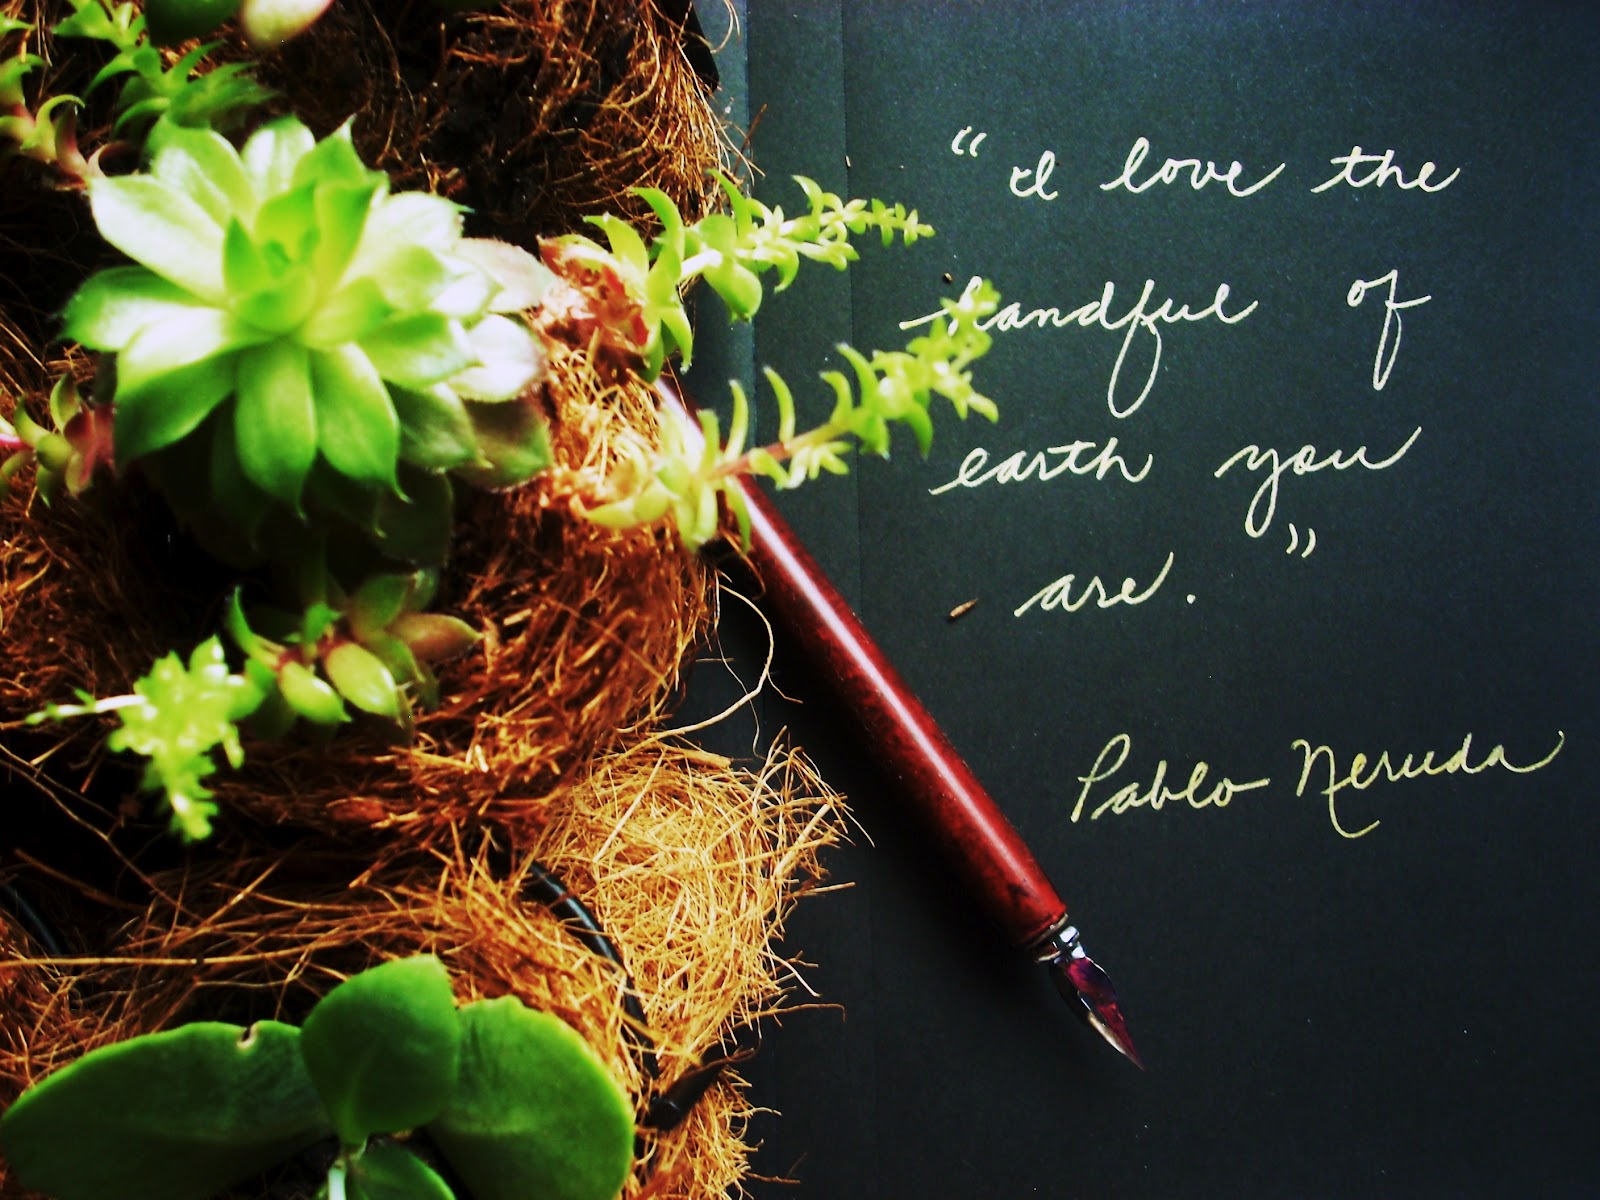 “I love the
handful of
earth you
are.”
Pablo Neruda